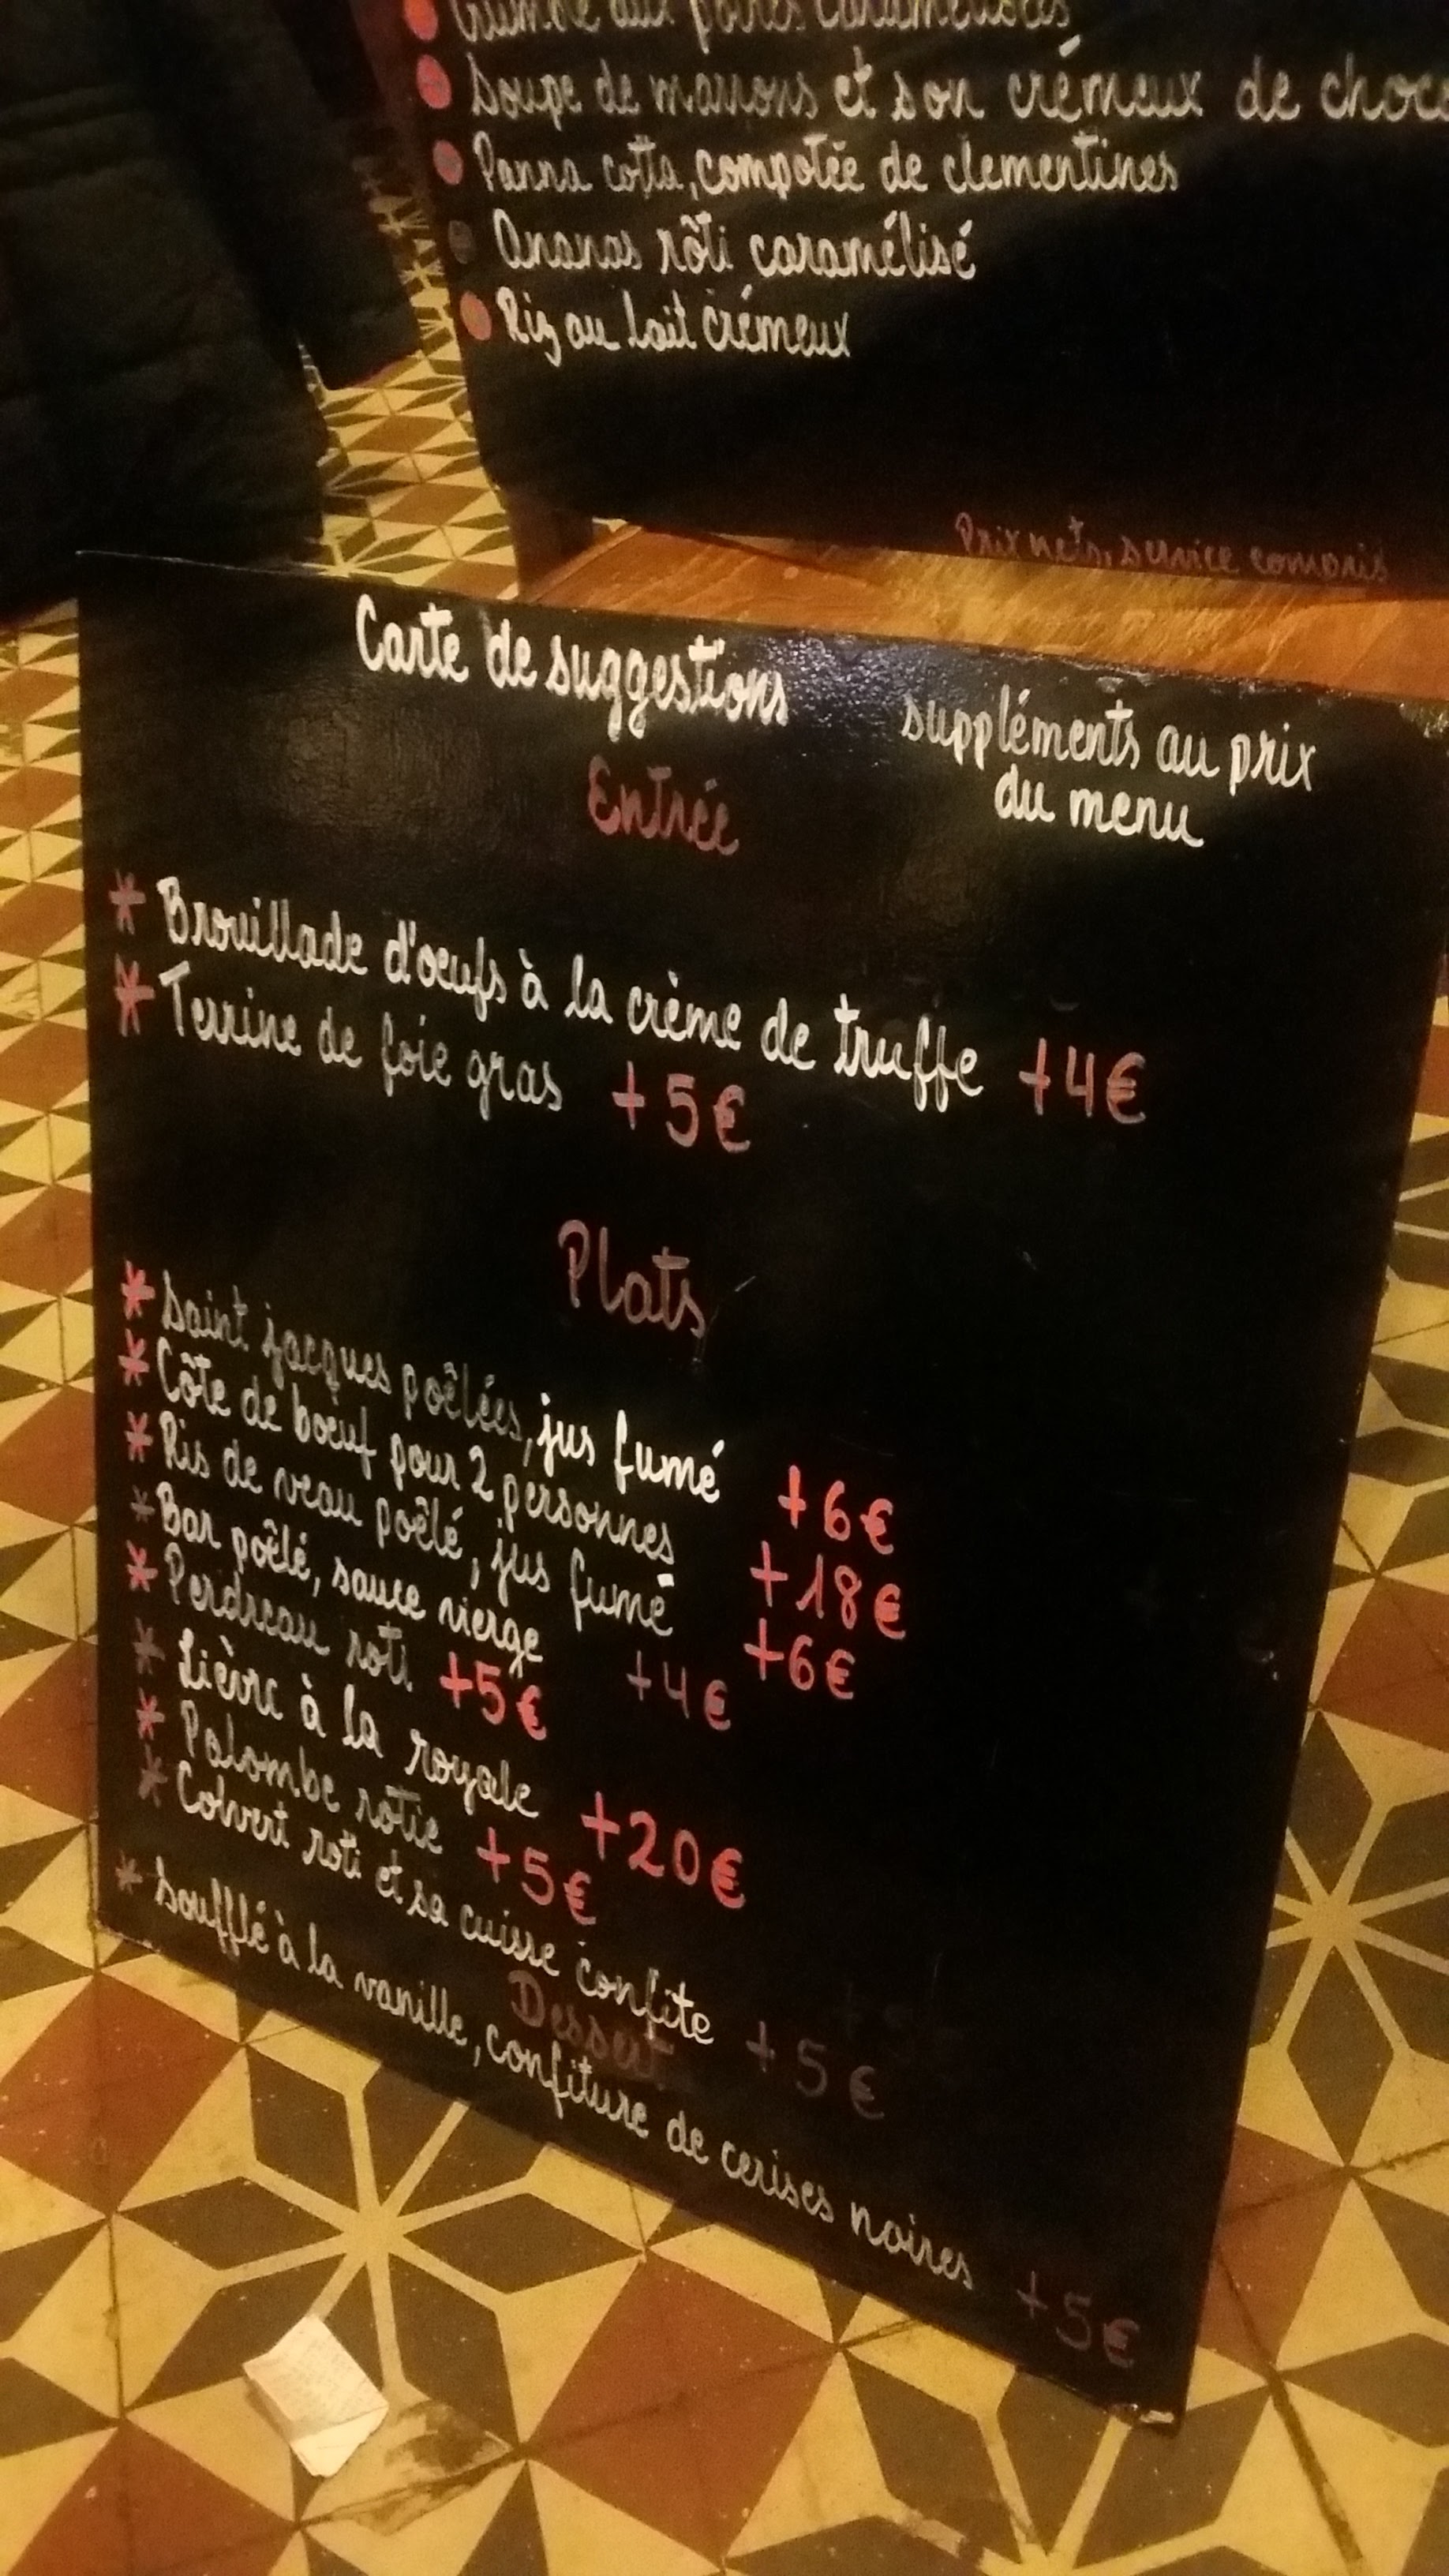 aux poires caramélisées
Soupe de marrons et son crémeux de choco
Panna cotta, compotée de clementines
Ananas rôti caramélisé
Riz au lait crémeux
Prix nets, service compris
Carte de suggestions
suppléments au prix
du menu
Entrée
* Brouillade d'œufs à la crème de truffe +4€
* Terrine de foie gras +5€
Plats
* Saint jacques poêlées, jus fumé +6€
* Côte de bœuf pour 2 personnes +18€
* Ris de veau poêlé, jus fumé +6€
* Bar poêlé, sauce vierge +4€
* Perdreau roti +5€
* Lièvre à la royale +20€
* Palombe rotie +5€
* Colvert roti et sa cuisse confite +5€
Dessert
* Soufflé à la vanille, confiture de cerises noires +5€